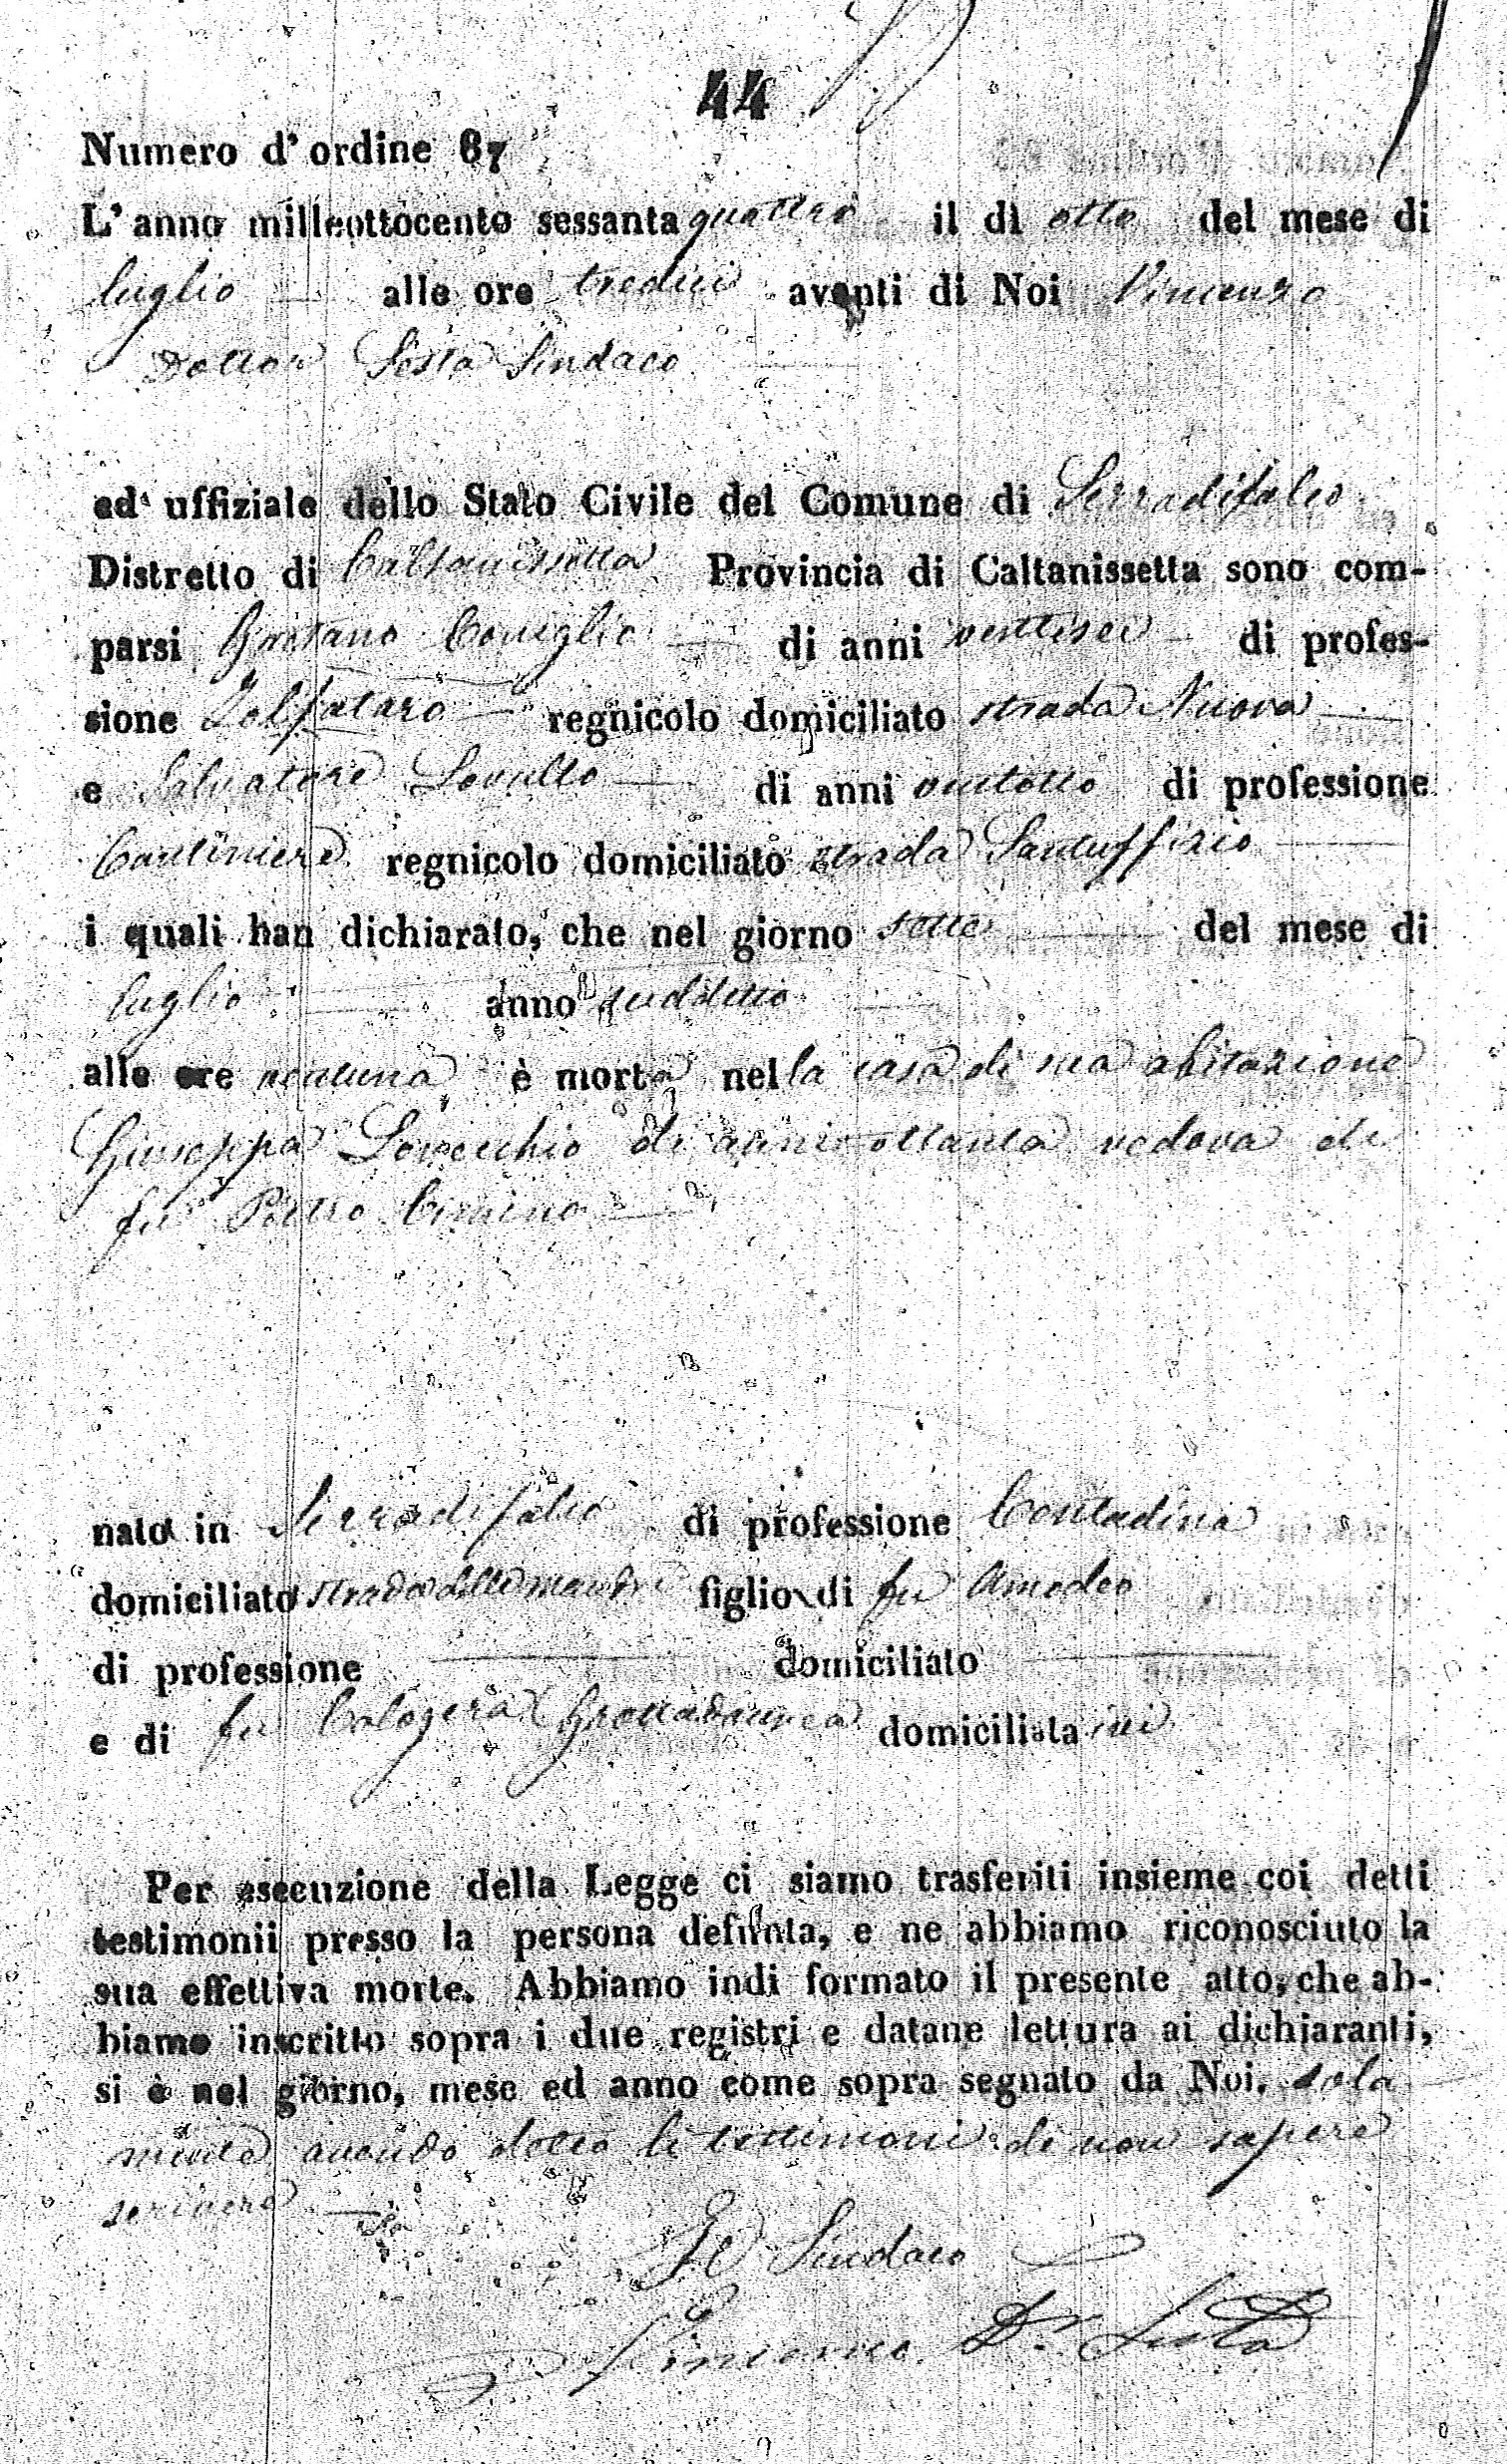 44
Numero d' ordine 67
L' anno milleottocento sessanta quattro il dì otto del mese di
luglio alle ore tredici avanti di Noi Vincenzo
Dottor Testa Sindaco
ed uffiziale dello Stato Civile del Comune di Serradifalco
Distretto di Caltanissetta Provincia di Caltanissetta sono com-
parsi Gaetano Coniglio di anni ventisei di profes-
sione Zolfataro regnicolo domiciliato strada Nuova
e Salvatore Lovullo di anni ventotto di professione
regnicolo domiciliato strada Santuffizio
i quali han dichiarato, che nel giorno sette del mese di
luglio anno suddetto
alle ore ventuna è morta nella casa di sua abitazione
Giuseppa Lovecchio di anni ottanta vedova di
fu Pietro
nata in Serradifalco di professione Contadina
domiciliata strada delle figlio di fu Amodeo
di professione domiciliato
e di fu Calogera Grottadaurea domiciliata ivi
Per esecuzione della Legge ci siamo trasferiti insieme coi detti
testimonii presso la persona defunta, e ne abbiamo riconosciuto la
sua effettiva morte. Abbiamo indi formato il presente atto, che ab-
biamo inscritto sopra i due registri e datane lettura ai dichiaranti,
si è nel giorno, mese ed anno come sopra segnato da Noi, sola
mente avendo detto li testimoni di non sapere
scrivere
Il Sindaco
Vincenzo Dr Testa